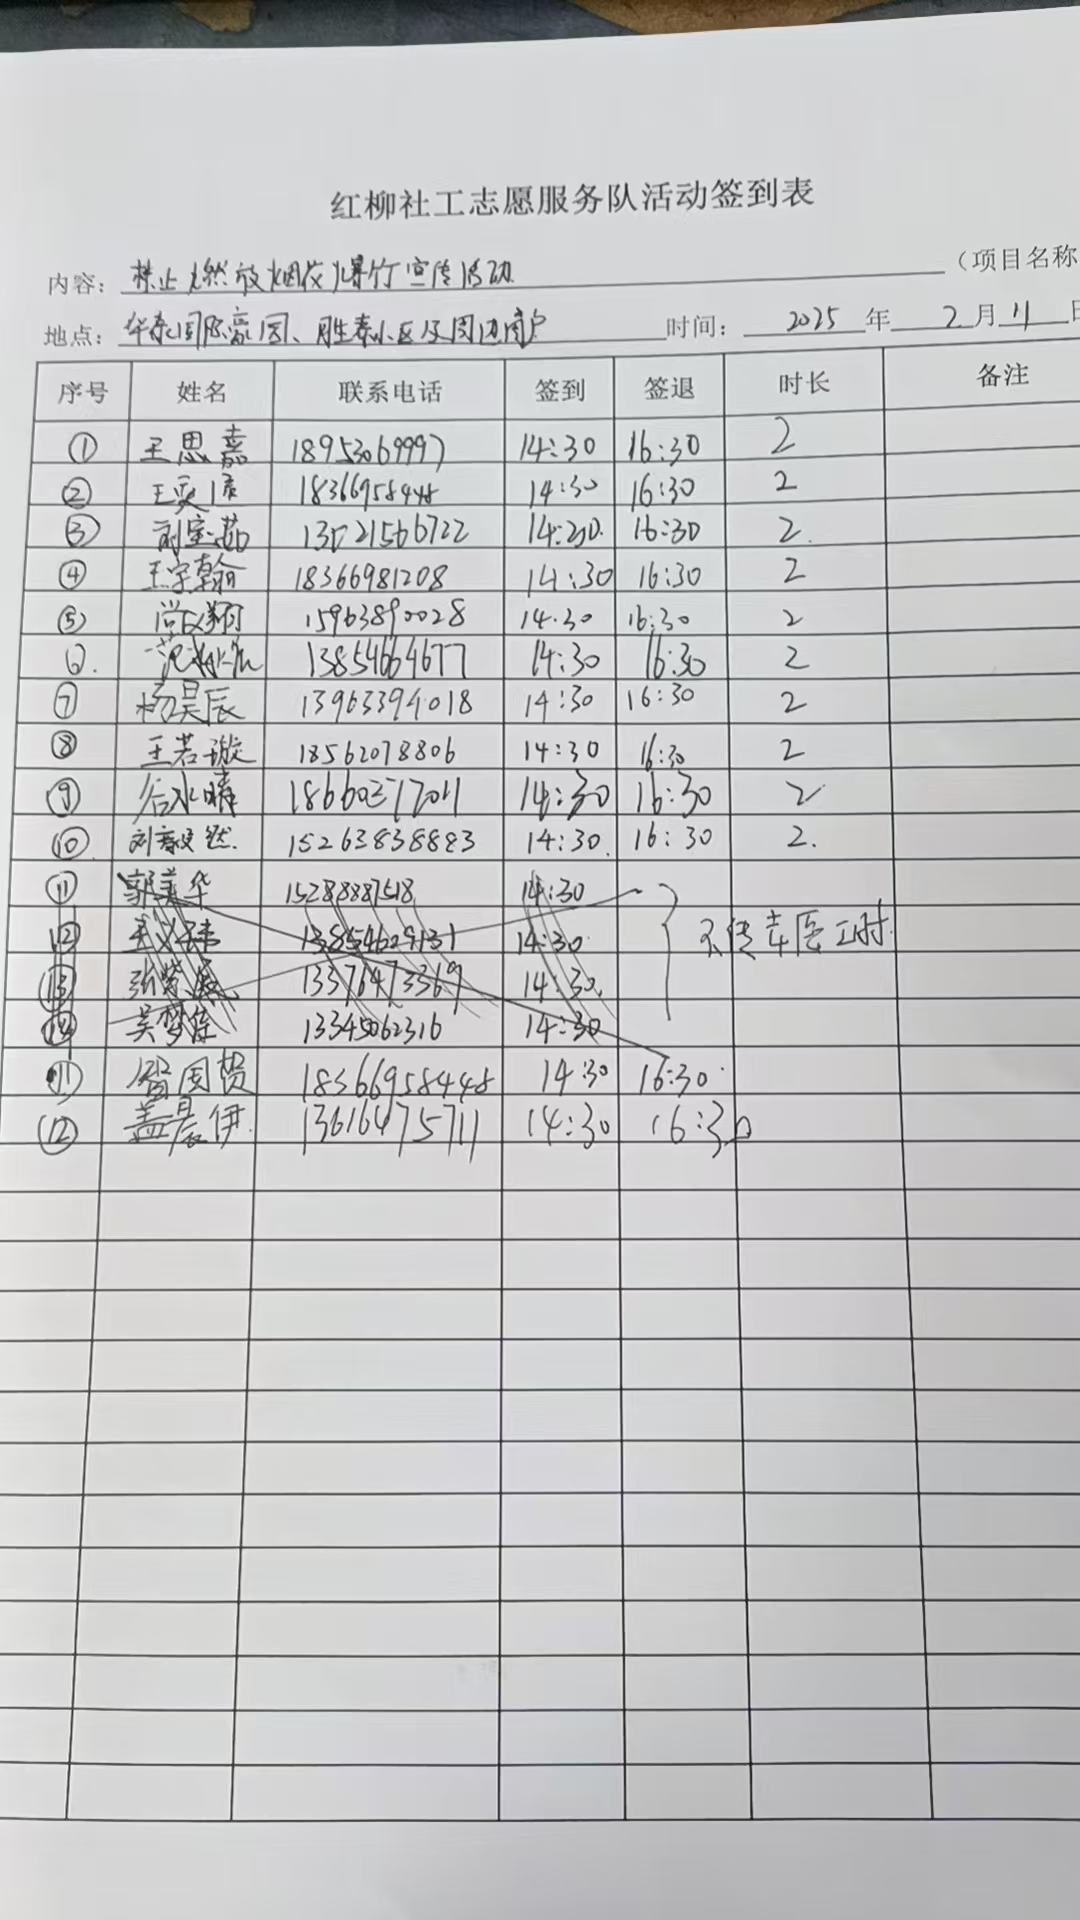 红柳社工志愿服务队活动签到表
内容：禁止燃放烟花爆竹宣传活动 （项目名称
地点：华泰国际豪园、胜泰小区及周边商户 时间：2025年2月11日
序号 姓名 联系电话 签到 签退 时长 备注
① 王思嘉 18953069997 14:30 16:30 2
② 王奕 18366958448 14:30 16:30 2
③ 刘宝茹 13021566722 14:30. 16:30 2.
④ 王宇翰 18366981208 14:30 16:30 2
⑤ 翔 15963890028 14:30 16:30 2
⑥. 范 13854664677 14:30 16:30 2
⑦ 杨昊辰 13963394018 14:30 16:30 2
⑧ 王若璇 18562078806 14:30 16:30 2
⑨ 谷水晴 14:30 16:30 2
⑩. 刘 然. 15263838883 14:30. 16:30 2.
⑪ 郭美华 15288887518 14:30
⑫ 13854629131 14:30 时
⑬ 张紫 13376473369 14:30.
⑭ 吴梦佳 13345062316 14:30
⑪ 国 18366958448 14:30 16:30.
⑫ 盖晨伊. 13616475711 14:30 16:30